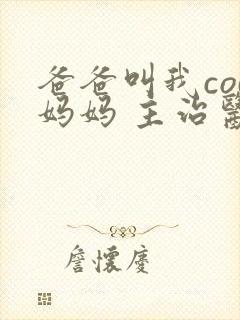 爸爸叫我co
妈妈 主治醫
詹懷慶